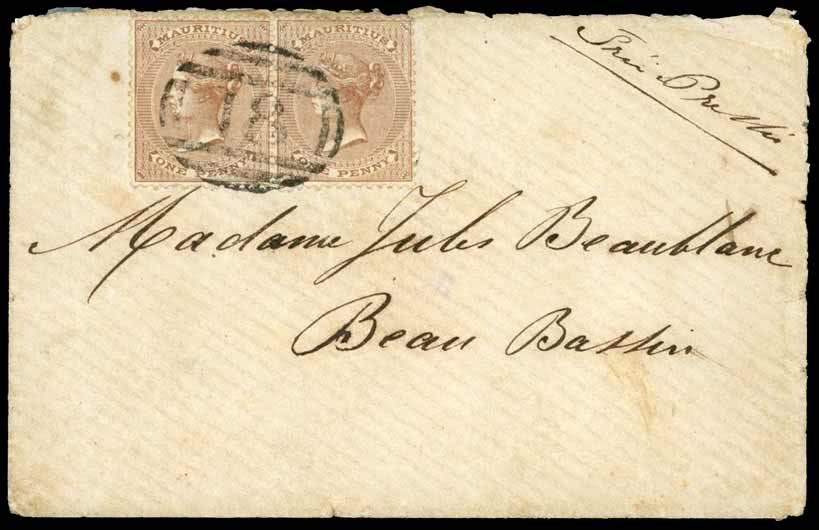 MAURITIUS MAURITIUS
ONE PENNY ONE PENNY
Très Pressé
Madame Jules Beaublanc
Beau Bassin